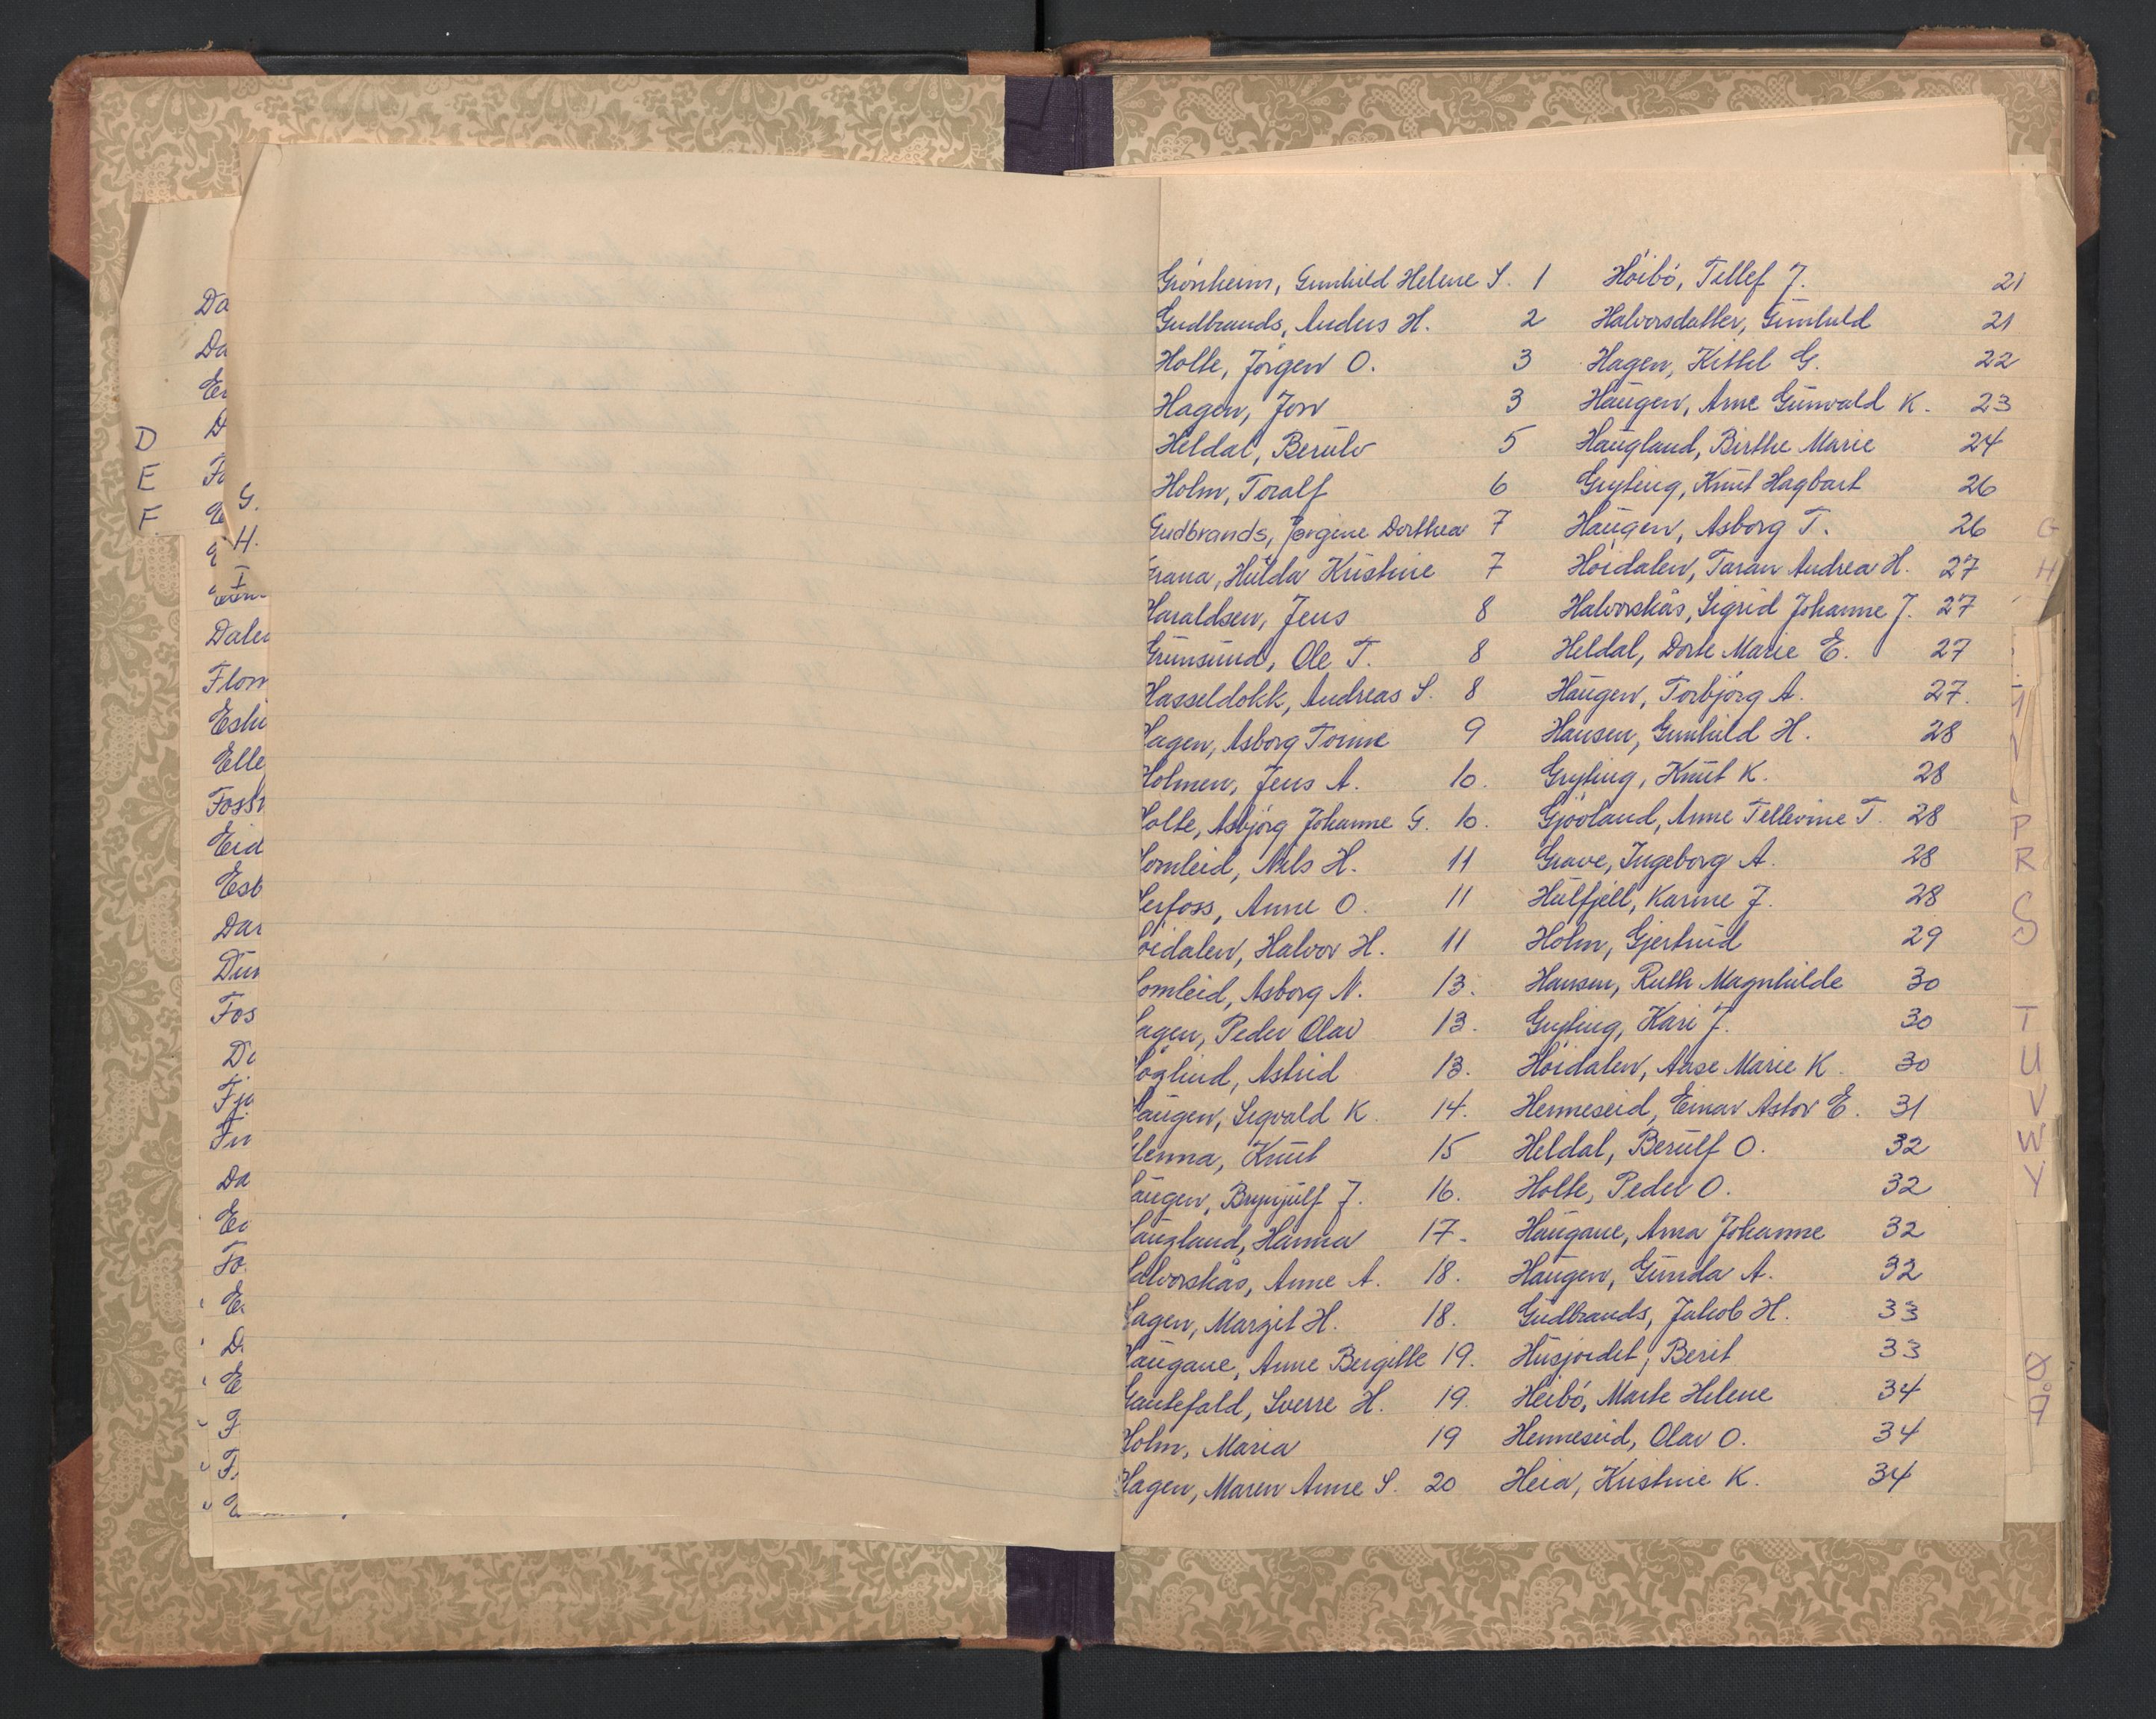 Da
Da
D
E
F
G.
H.
I
Dale
Flom
Elle
Eid
Dar
Fos
Da
Grönheim, Gunhild Helene S. 1
Gudbrands, Anders H. 2
Holte, Jörgen O. 3
Hagen, Jon 3
Heldal, Berulv 5
Holm, Toralf 6
Gudbrands, Jørgine Dorthea 7
rana, Hulda Kristine 7
Haraldsen, Jens 8
Grunsund, Ole T. 8
Hasseldokk, Andreas S. 8
Hagen, Asborg Tomine 9
Holmen, Jens A. 10.
Holte, Asbjörg Johanne G. 10.
Homleid, Nils H. 11
Herfoss, Anne O. 11
öidalen, Halvor H. 11
omleid, Asborg N. 13.
agen, Peder Olav 13.
öglind, Astrid 13.
augen, Sigvald K. 14.
lenna, Knut 15
augen, Brynjulf J. 16.
augland, Hanna 17.
alvorskås, Anne A. 18.
agen, Margit H. 18.
Haugane, Anne Bergitte 19.
Gautefald, Sverre H. 19.
Holm, Maria 19
Hagen, Maren Anne S. 20
Höibö, Tellef J. 21
Halvorsdatter, Gunhild 21
Hagen, Kittel G. 22
Haugen, Arne Gunvald K. 23
Haugland, Birthe Marie 24
Gryting, Knut Hagbart 26
Haugen, Asborg T. 26
Höidalen, Taran Andrea H. 27
Halvorskås, Sigrid Johanne J. 27
Heldal, Dorte Marie E. 27
Haugen, Torbjörg A. 27.
Hansen, Gunhild H. 28
Gryting, Knut K. 28
Gjövland, Anne Tellevine T. 28
Grave, Ingeborg A. 28
Hulfjell, Karine J. 28
Holm, Gjertrud 29
Hansen, Ruth Magnhilde 30
Gryting, Kari J. 30
Höidalen, Aase Marie K. 30
Henneseid, Einar Astor E. 31
Heldal, Berulf O. 32
Holte, Peder O. 32
Haugane, Anna Johanne 32
Haugen, Gunda A. 32
Gudbrands, Jakob H. 33
Husjordet, Berit 33
Heibö, Marte Helene 34
Henneseid, Olav O. 34
Heia, Kristine K. 34
G
H
P
R
S
T
U
V
W
Y
Ø
Å